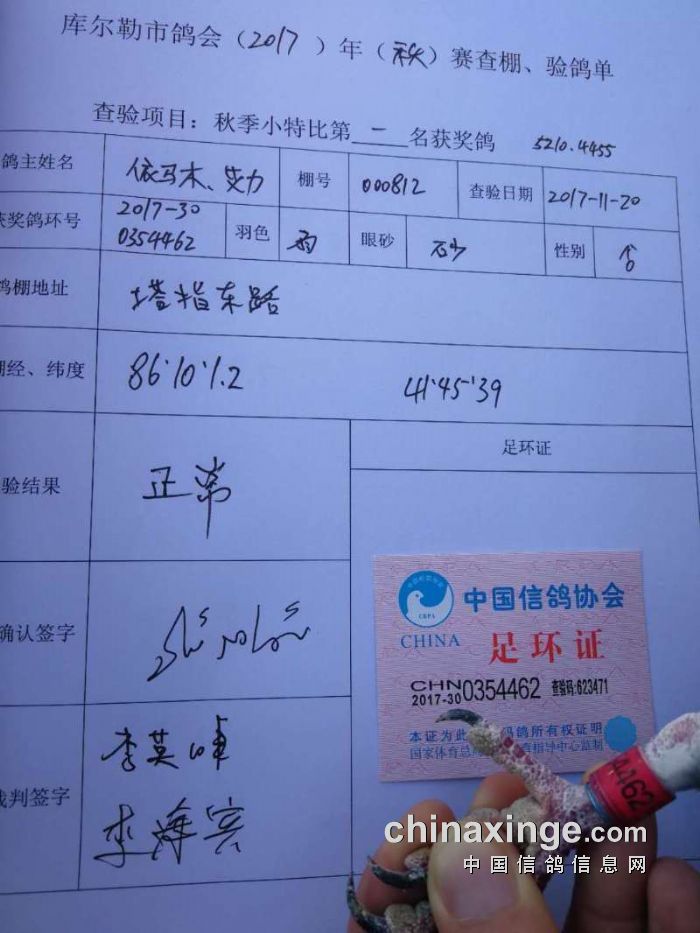 库尔勒市鸽会（2017）年（秋）赛查棚、验鸽单
查验项目：秋季小特比第二名获奖鸽 5210.4455
鸽主姓名 依马木、艾力 棚号 000812 查验日期 2017-11-20
获奖鸽环号 2017-30 0354462 羽色 雨 眼砂 砂 性别 合
鸽棚地址 塔指东路
棚经、纬度 86°10'1.2 41°45'39
验结果 正常
足环证
确认签字
裁判签字 李英
李海宾
中国信鸽协会
CRPA
CHINA
足环证
CHN
2017-30 0354462 查验码:623471
本证为此 码鸽所有权证明
国家体育总 指导中心监制
4462
chinaxinge.com
中国信鸽信息网